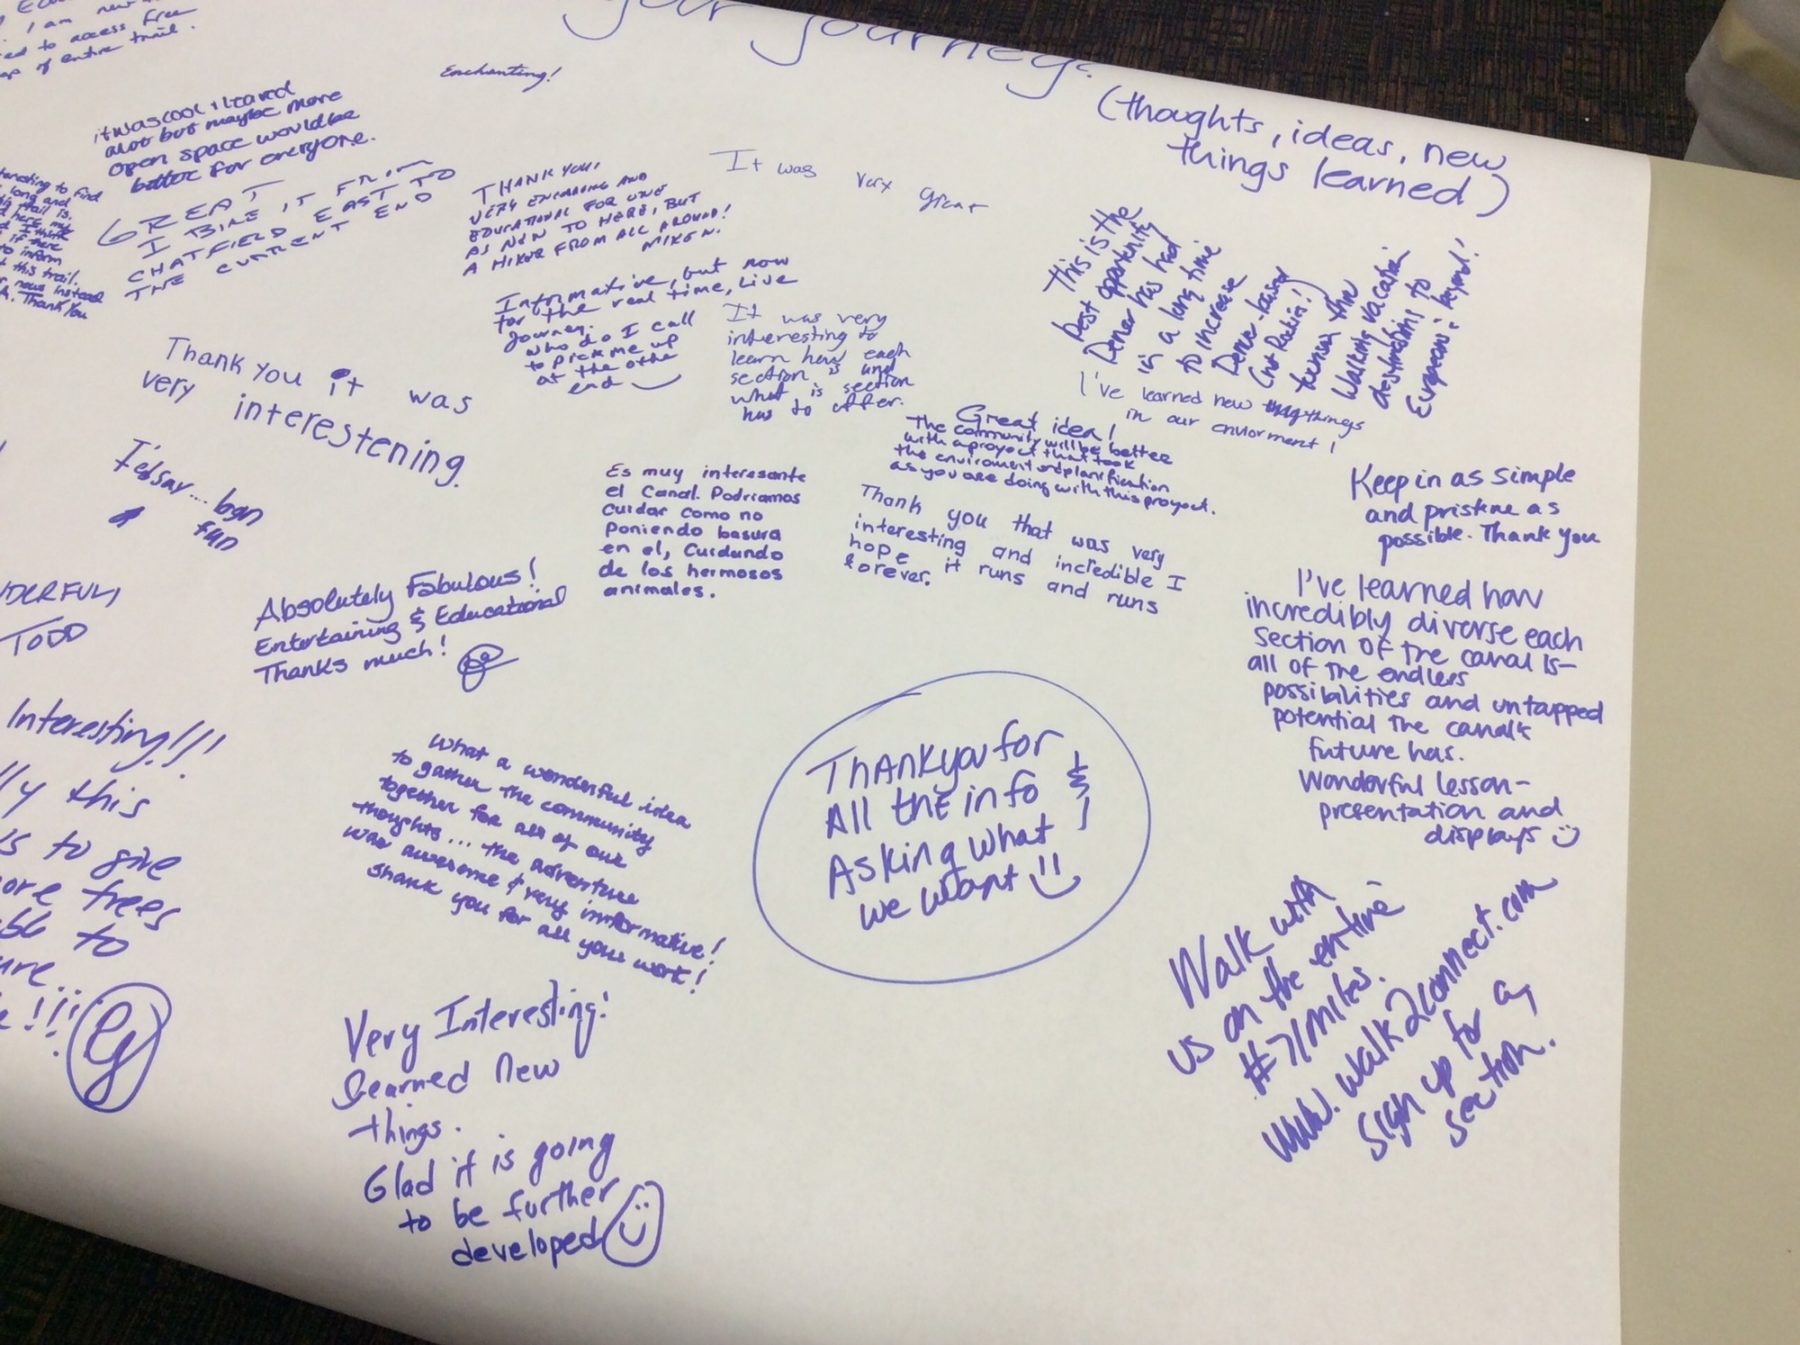 your journey?
(thoughts, ideas, new
things learned)
I am new
to access free
of entire trail.
Enchanting!
it was cool i leared
alot but maybe more
open space would be
better for everyone.
to find
long and
trail is.
here
if there
to inform
this trail.
news instead
Thank You
GREAT
I BIKE IT FROM
CHATFIELD EAST TO
THE CURRENT END
THANK YOU,
VERY ENGAGING AND
EDUCATIONAL FOR ONE
AS NEW TO HERE, BUT
A HIKER FROM ALL AROUND!
MIKE N.
It was very great
Informative, but now
for the real time, live
journey.
who do I call
to pick me up
at the other
end
It was very
interesting to
learn how each
section is and
what is section
has to offer.
This is the
best opportunity
Denver has had
in a long time
to increase
Denver based
(not Rockies!)
tourism thru
Walking vacation
destinations to
Europeans & beyond!
I've learned new things
in our enviorment!
Thank you it was
very interestening.
I'd say... bgn
fun
Great idea!
The community will be better
with a proyect that took
the enviroment and planification
as you are doing with this proyect.
Es muy interesante
el Canal. Podriamos
cuidar como no
poniendo basura
en el, Cuidando
de los hermosos
animales.
Thank you that was very
interesting and incredible I
hope it runs and runs
forever.
Keep in as simple
and pristine as
possible. Thank you
TODD
Absolutely Fabulous!
Entertaining & Educational
Thanks much!
I've learned how
incredibly diverse each
section of the canal is-
all of the endless
possibilities and untapped
potential the canals
future has.
Wonderful lesson-
presentation and
displays
Interesting!!!
this
to give
trees
to
!!!
What a wonderful idea
to gather the community
together for all of our
thoughts... the adventure
was awesome & very informative!
thank you for all your work!
Thankyou for
All the info
Asking what
we want!!
Very Interesting!
learned new
things.
Glad it is going
to be further
developed
Walk with
us on the entire
#71Miles.
www.walk2connect.com
Sign up for a
section.